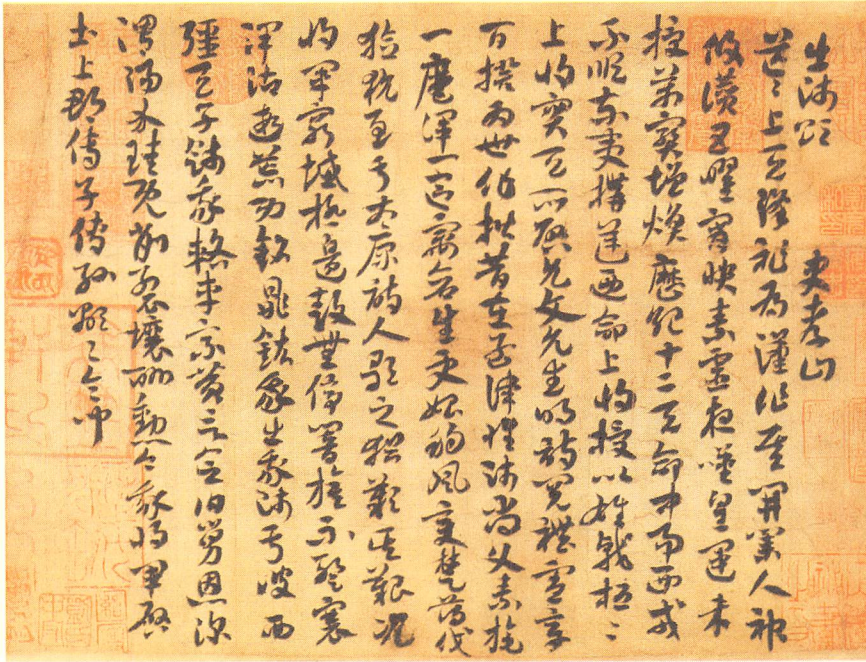 出師頌 史孝山
茫茫上天降祚為漢作基開業人神
攸讚五曜霄映素靈夜歎皇運未
授萬寶增煥歷紀十二天命中易西戎
不順東夷構逆乃命上將授以雄戟桓桓
上將寔天所啟允文允武明詩閱禮憲章
百揆為世作楷昔在孟津惟師尚父素旄
一麾渾一區宇蒼生更始朔風變楚薄伐
獫狁至于太原詩人歌之猶歎其艱況
我將軍窮域極邊鼓無停響旌不蹔褰
澤沾遐荒功銘鼎鉉我出我師于彼西
疆天子餞我輅車乘黃言念伯舅恩深
渭陽介珪既削裂壤酬勳今我將軍啟
土上郡傳子傳孫顯顯令問